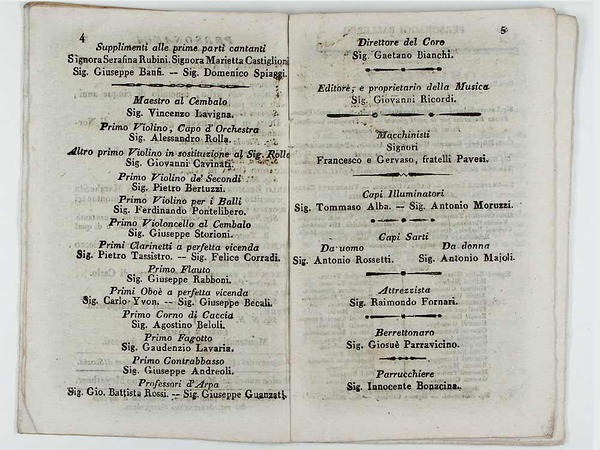 4
Supplimenti alle prime parti cantanti
Signora Serafina Rubini. Signora Marietta Castiglioni
Sig. Giuseppe Banfi. — Sig. Domenico Spiaggi.
Maestro al Cembalo
Sig. Vincenzo Lavigna.
Primo Violino, Capo d'Orchestra
Sig. Alessandro Rolla.
Altro primo Violino in sostituzione al Sig. Rolla
Sig. Giovanni Cavinati.
Primo Violino de' Secondi
Sig. Pietro Bertuzzi.
Primo Violino per i Balli
Sig. Ferdinando Pontelibero.
Primo Violoncello al Cembalo
Sig. Giuseppe Storioni.
Primi Clarinetti a perfetta vicenda
Sig. Pietro Tassistro. — Sig. Felice Corradi.
Primo Flauto
Sig. Giuseppe Rabboni.
Primi Oboè a perfetta vicenda
Sig. Carlo Yvon. — Sig. Giuseppe Becali.
Primo Corno di Caccia
Sig. Agostino Beloli.
Primo Fagotto
Sig. Gaudenzio Lavaria.
Primo Contrabbasso
Sig. Giuseppe Andreoli.
Professori d'Arpa
Sig. Gio. Battista Rossi. — Sig. Giuseppe Guanzati.
5
Direttore del Coro
Sig. Gaetano Bianchi.
Editore, e proprietario della Musica
Sig. Giovanni Ricordi.
Macchinisti
Signori
Francesco e Gervaso, fratelli Pavesi.
Capi Illuminatori
Sig. Tommaso Alba. — Sig. Antonio Moruzzi.
Capi Sarti
Da uomo Da donna
Sig. Antonio Rossetti. Sig. Antonio Majoli.
Attrezzista
Sig. Raimondo Fornari.
Berrettonaro
Sig. Giosuè Parravicino.
Parrucchiere
Sig. Innocente Bonacina.